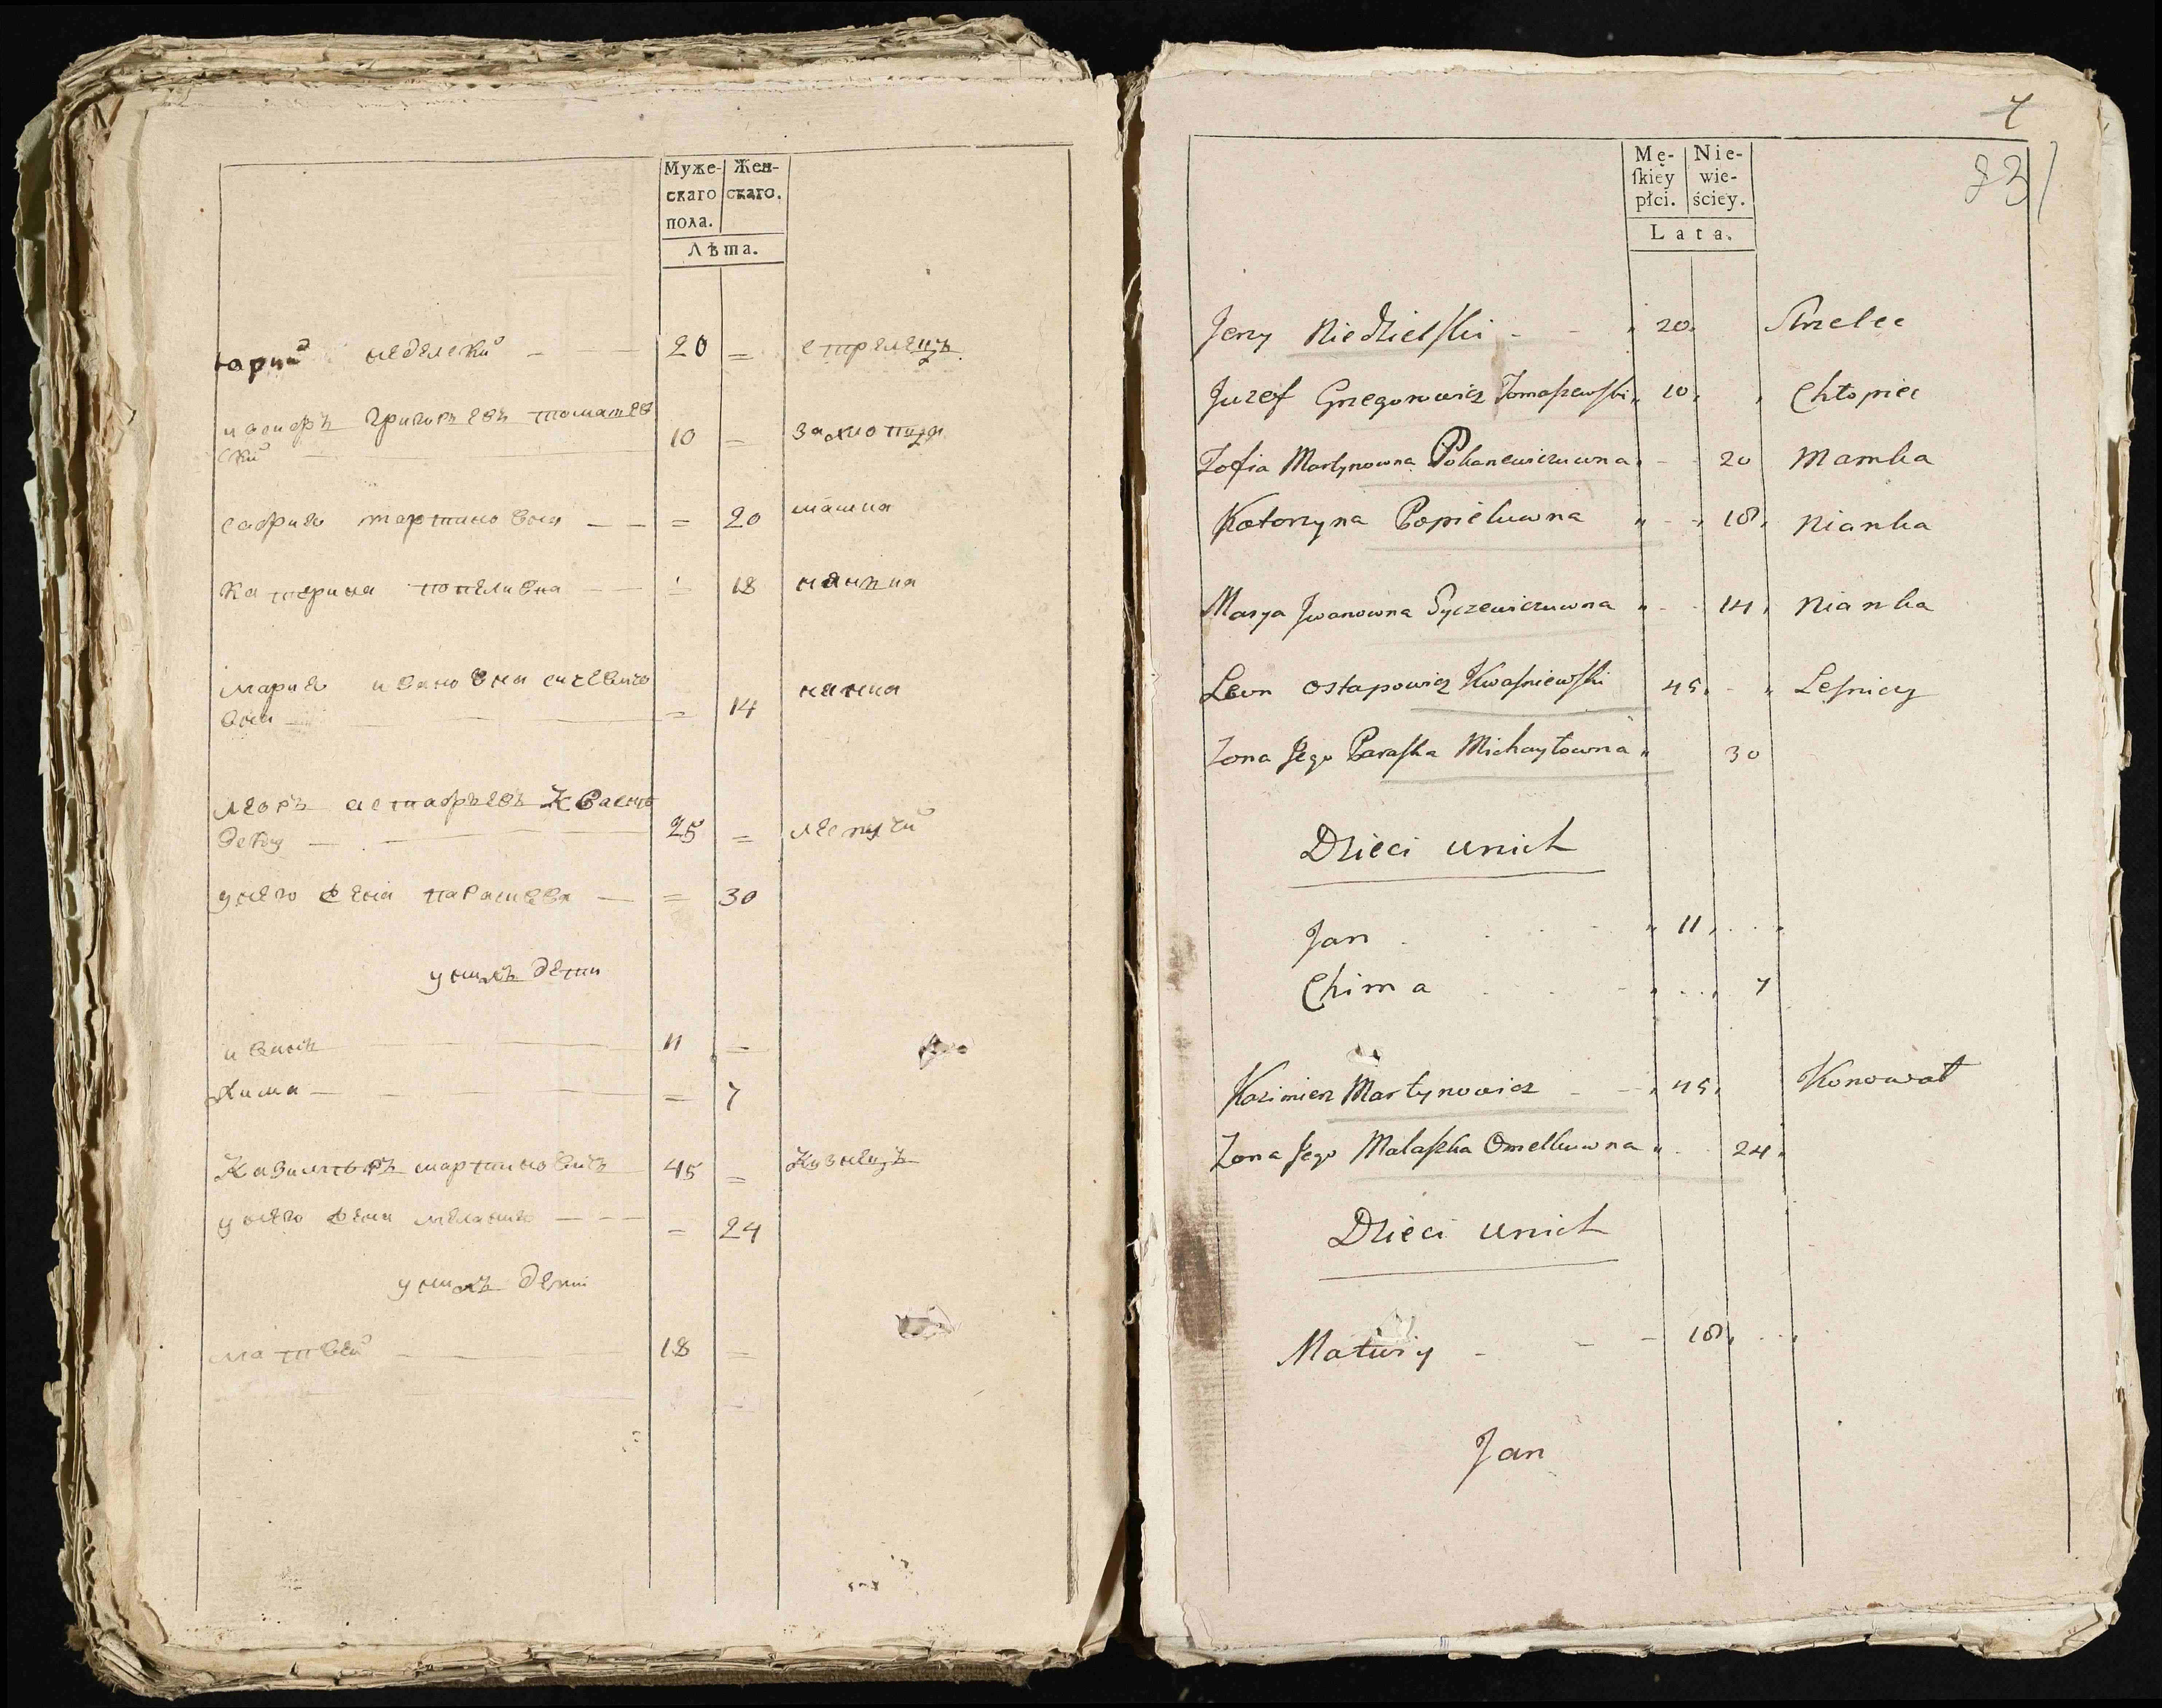 Муже-
скаго
пола.
Жен-
скаго.
Лѣта.
юрий неделский 20 = стрелецъ
иосифъ григорьевъ томашев
ский 10 =
софия мартиновна = 20 мамка
катерина попелювна = 18 нянька
мария ивановна сичевичо
вна = 14 нянка
леонъ астафьевъ Квасне
вский 25 = леснучий
унего жена парасцева = 30
унихъ дети
иванъ 11 =
хима = 7
Казимиръ мартиновичъ 45 = Кузнецъ
унего жена меланию = 24
унихъ дети
матвей 18 =
7
83
Mę-
ſkiey
płci.
Nie-
wie-
ściey.
Lata.
Jerzy Niedzielſki - - " 20. Strzelec
Juzef Grzegorowicz Tomaſzewſki " 10. " Chłopiec
Zofia Martynowna Pohanewiczuwna " - 20 Mamka
Katorzyna Popieluwna " - " 18. Nianka
Marya Jwanowna Syczewiczuwna " - 14. Nianka
Lewn Ostapowicz Kwaſniewſki 45. - " Leſniczy
Zona Jego Paraſka Michayłowna " 30
Dzieci unich
Jan " 11 "
Chima " 7
Kazimierz Martynowicz - - " 45. Konował
Zona Jego Malaſzka Omelkuwna " 24.
Dzieci unich
Matwiy - - - 18.
Jan